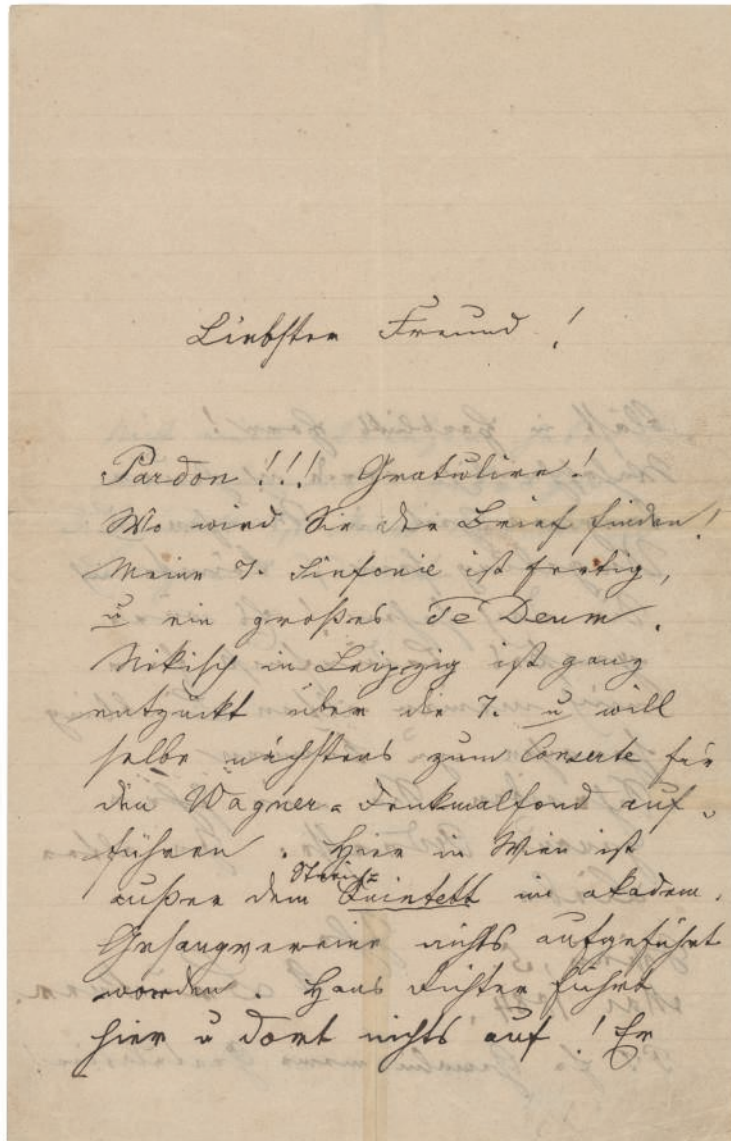 Liebster Freund !
Pardon !!! Gratulire !
Wo wird Sie der Brief finden!
Meine 7. Sinfonie ist fertig,
u ein großes Te Deum .
Nikisch in Leipzig ist ganz
entzückt über die 7. u will
selbe nächstens zum Concerte für
den Wagner-Denkmalfond auf-
führen . Hier in Wien ist
außer dem Streich-Quintett im akadem.
Gesangvereine nichts aufgeführt
worden . Hans Richter führt
hier u dort nichts auf ! Er